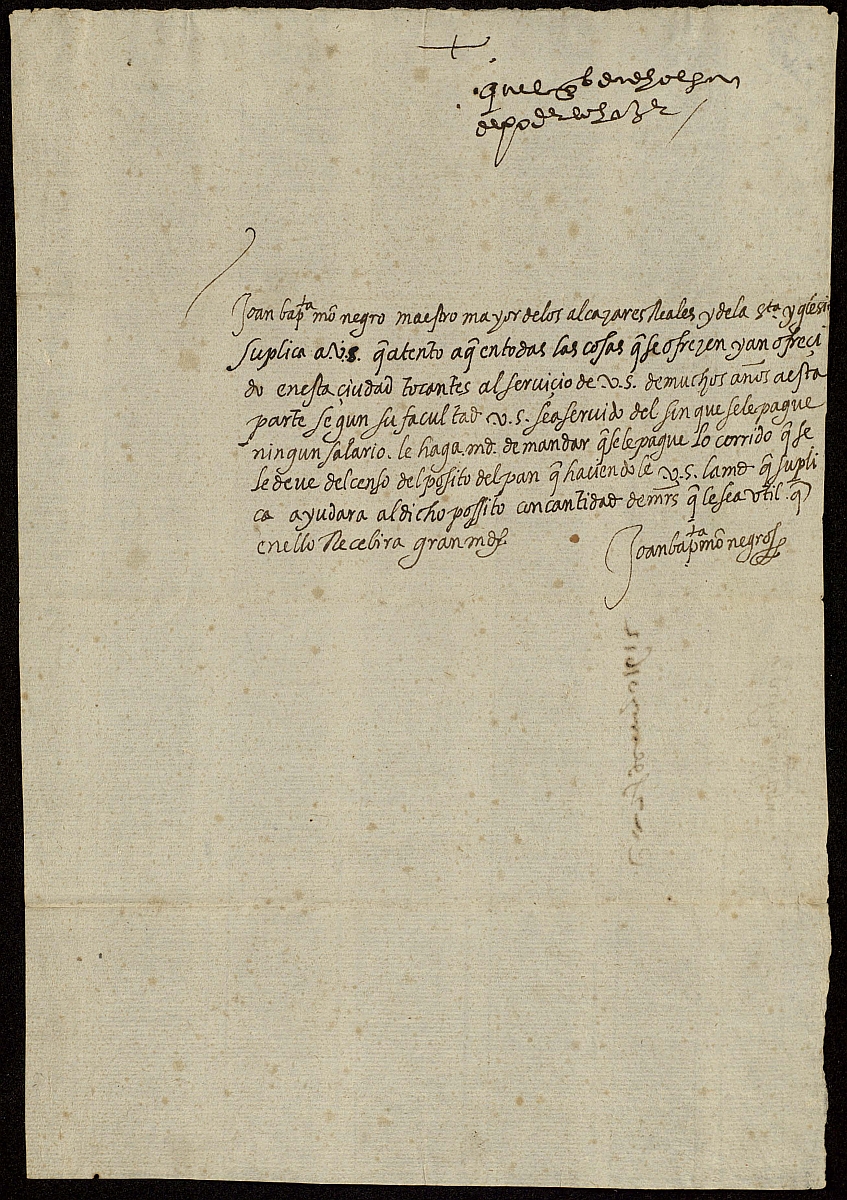 +
que el
de poderlo hazer
Joan bapta mo negro maestro mayor de los alcazares Reales y de la sta yglesi
suplica a V.S. q atento a q en todas las cosas q se ofrezen y an ofreçi
do en esta çiudad tocantes al servicio de V.S. de muchos años a esta
parte segun su facultad V.S. sea servido del sin que se le pague
ningun salario. le haga md. de mandar q se le pague lo corrido q se
le deve del censo del posito del pan q haviendole V.S. la md q supli
ca ayudara al dicho possito con cantidad de mrs q le sea util. q
en ello Recebira gran md.
Joan bapta mo negro